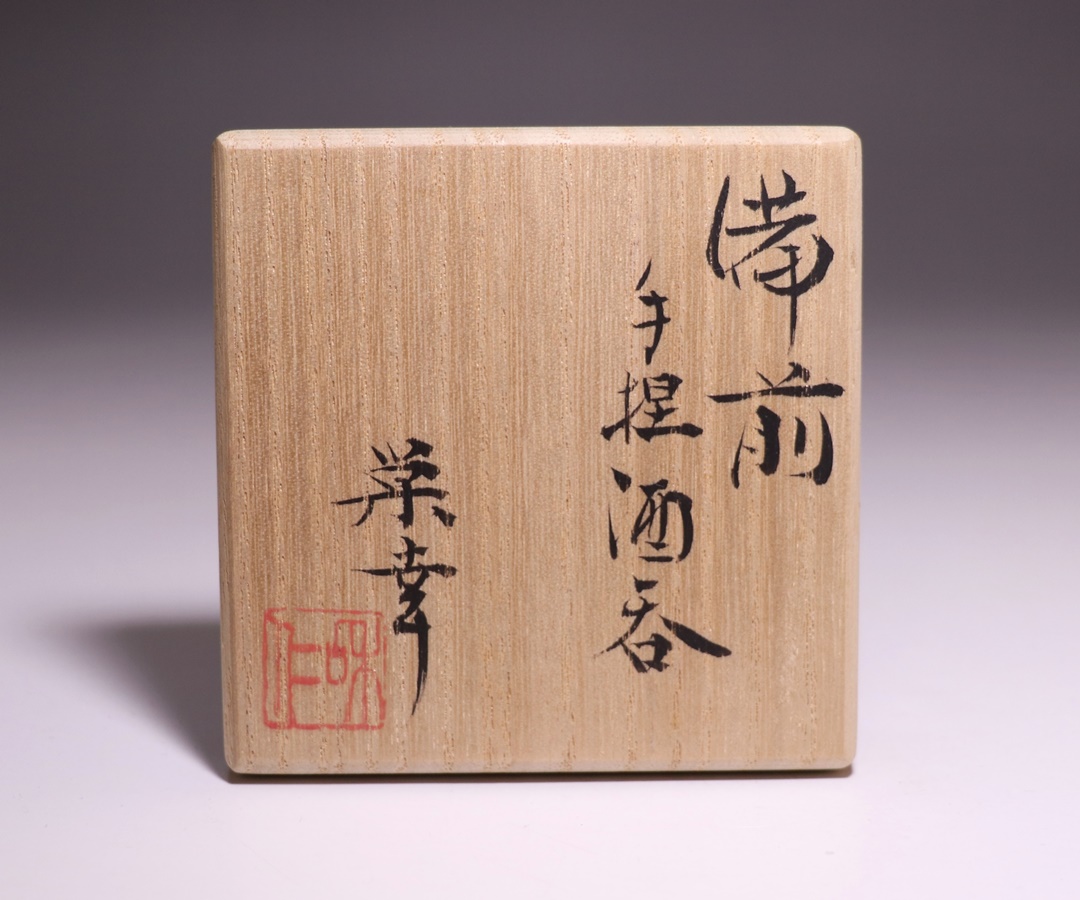 備前
手捏酒呑
栄幸